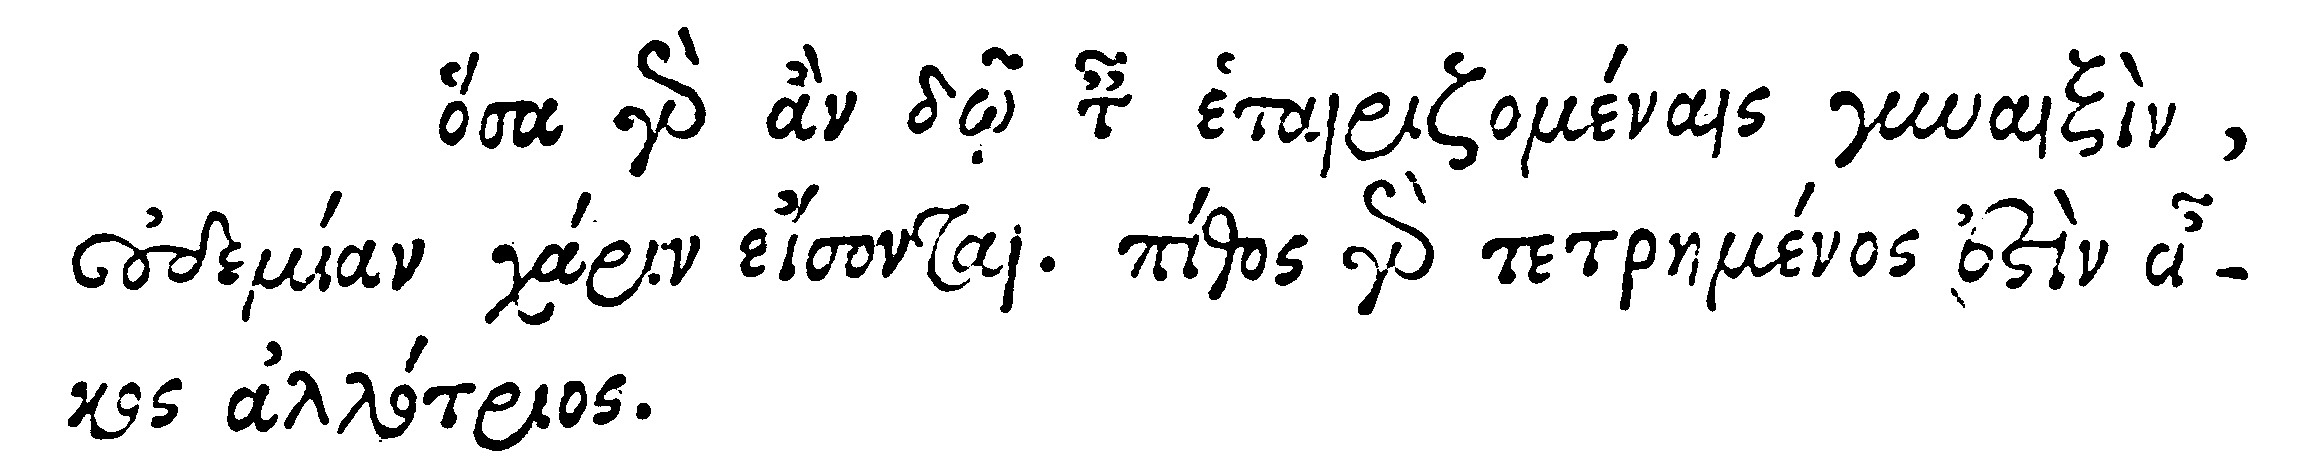 ὅσα γὰρ ἂν δῷ ταῖς ἑταιριζομέναις γυναιξὶν,
οὐδεμίαν χάριν εἴσονται. πίθος γὰρ τετρημένος ἐστὶν οἶ-
κος ἀλλότριος.